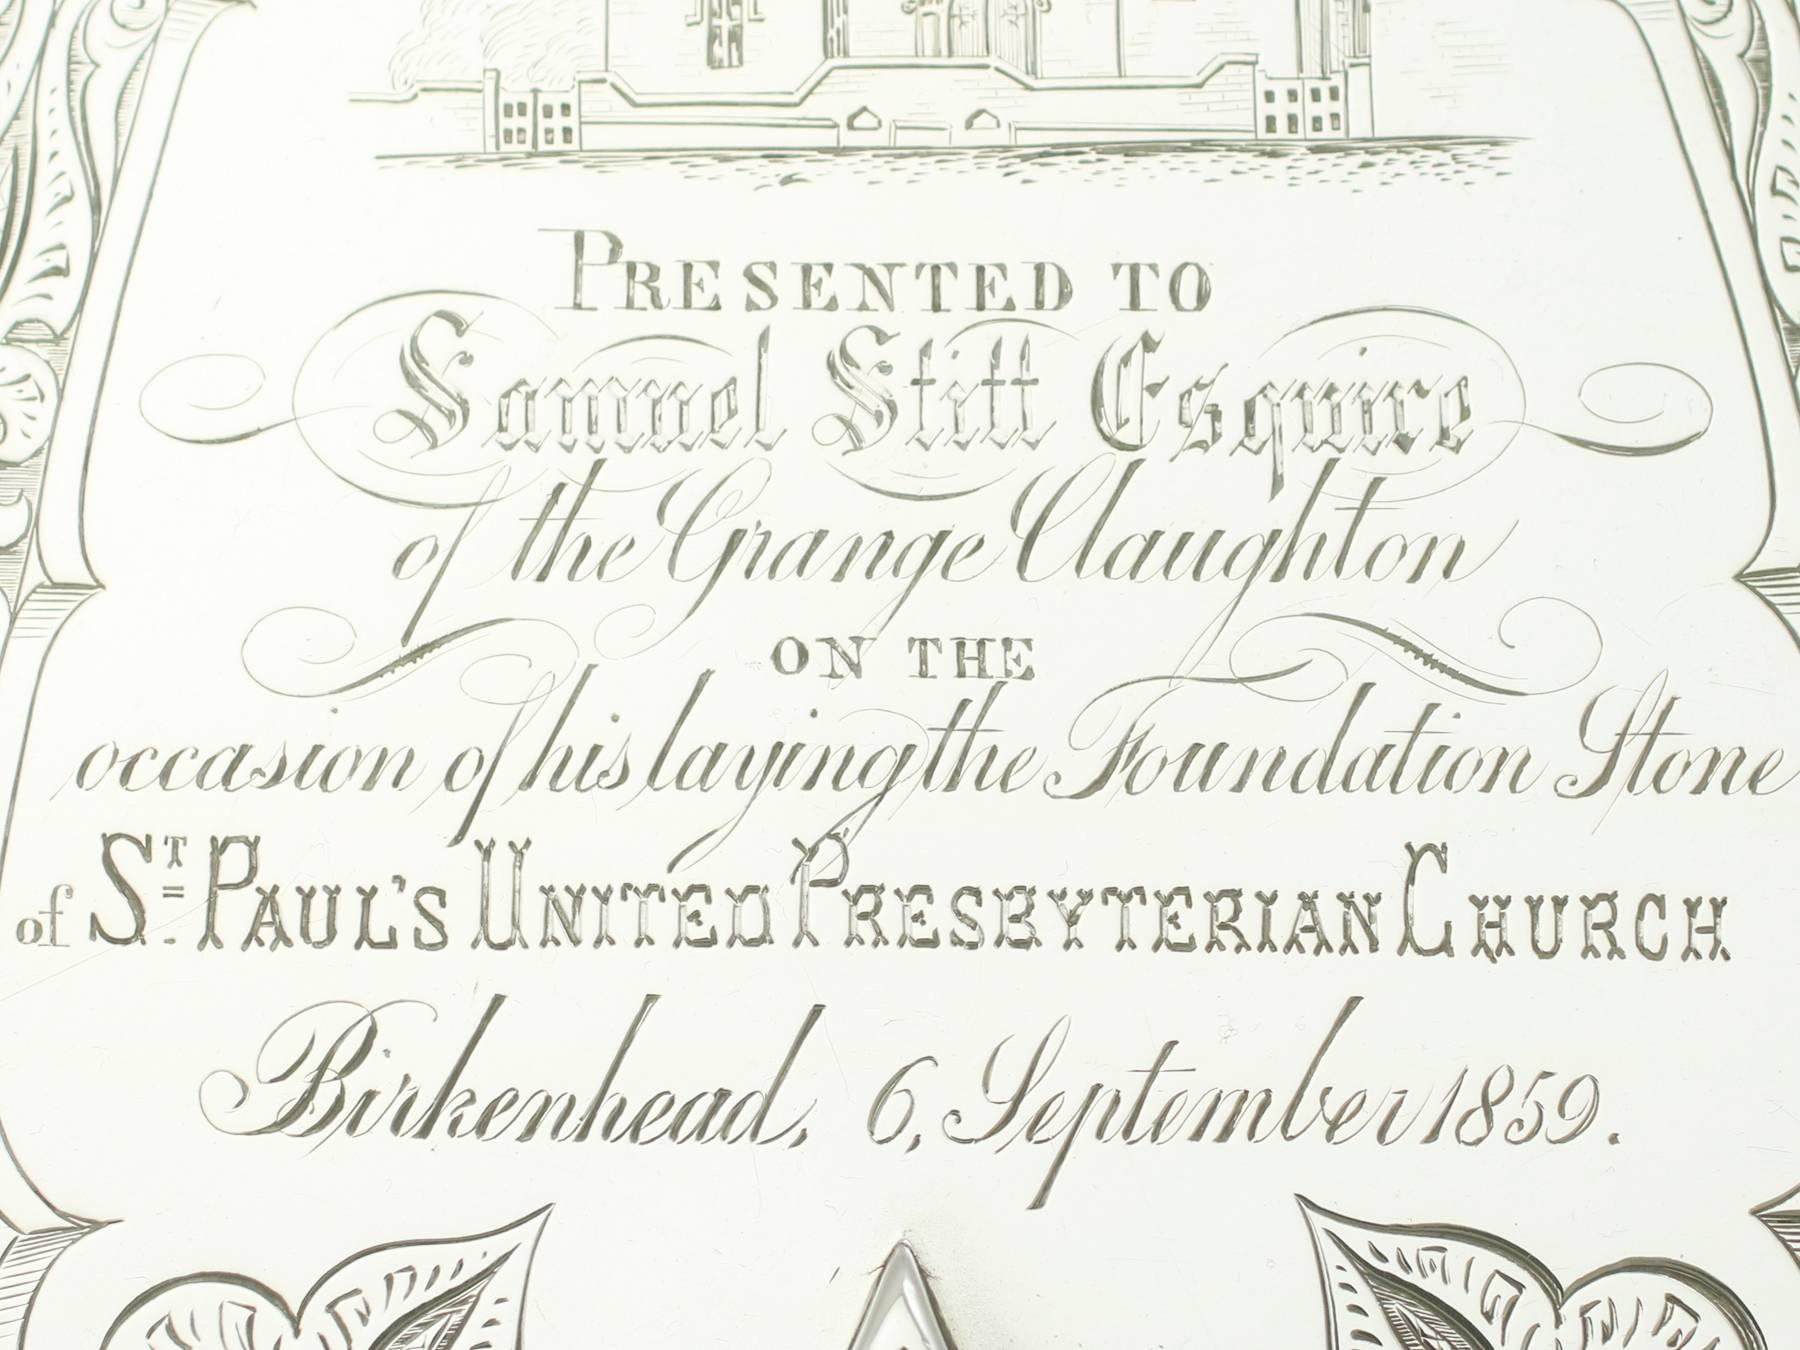 PRESENTED TO
Samuel Stitt Esquire
of the Grange Claughton
ON THE
occasion of his laying the Foundation Stone
of ST. PAUL'S UNITED PRESBYTERIAN CHURCH
Birkenhead, 6, September 1859.